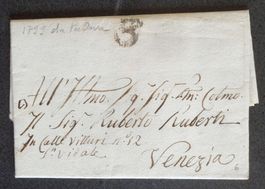 1799 da Padova
All' Illmo Sig. Sig. Pne Colmo
Il Sig. Ruberto Ruberti
In Calle Vitturi n.º 12
S. Vidale
Venezia